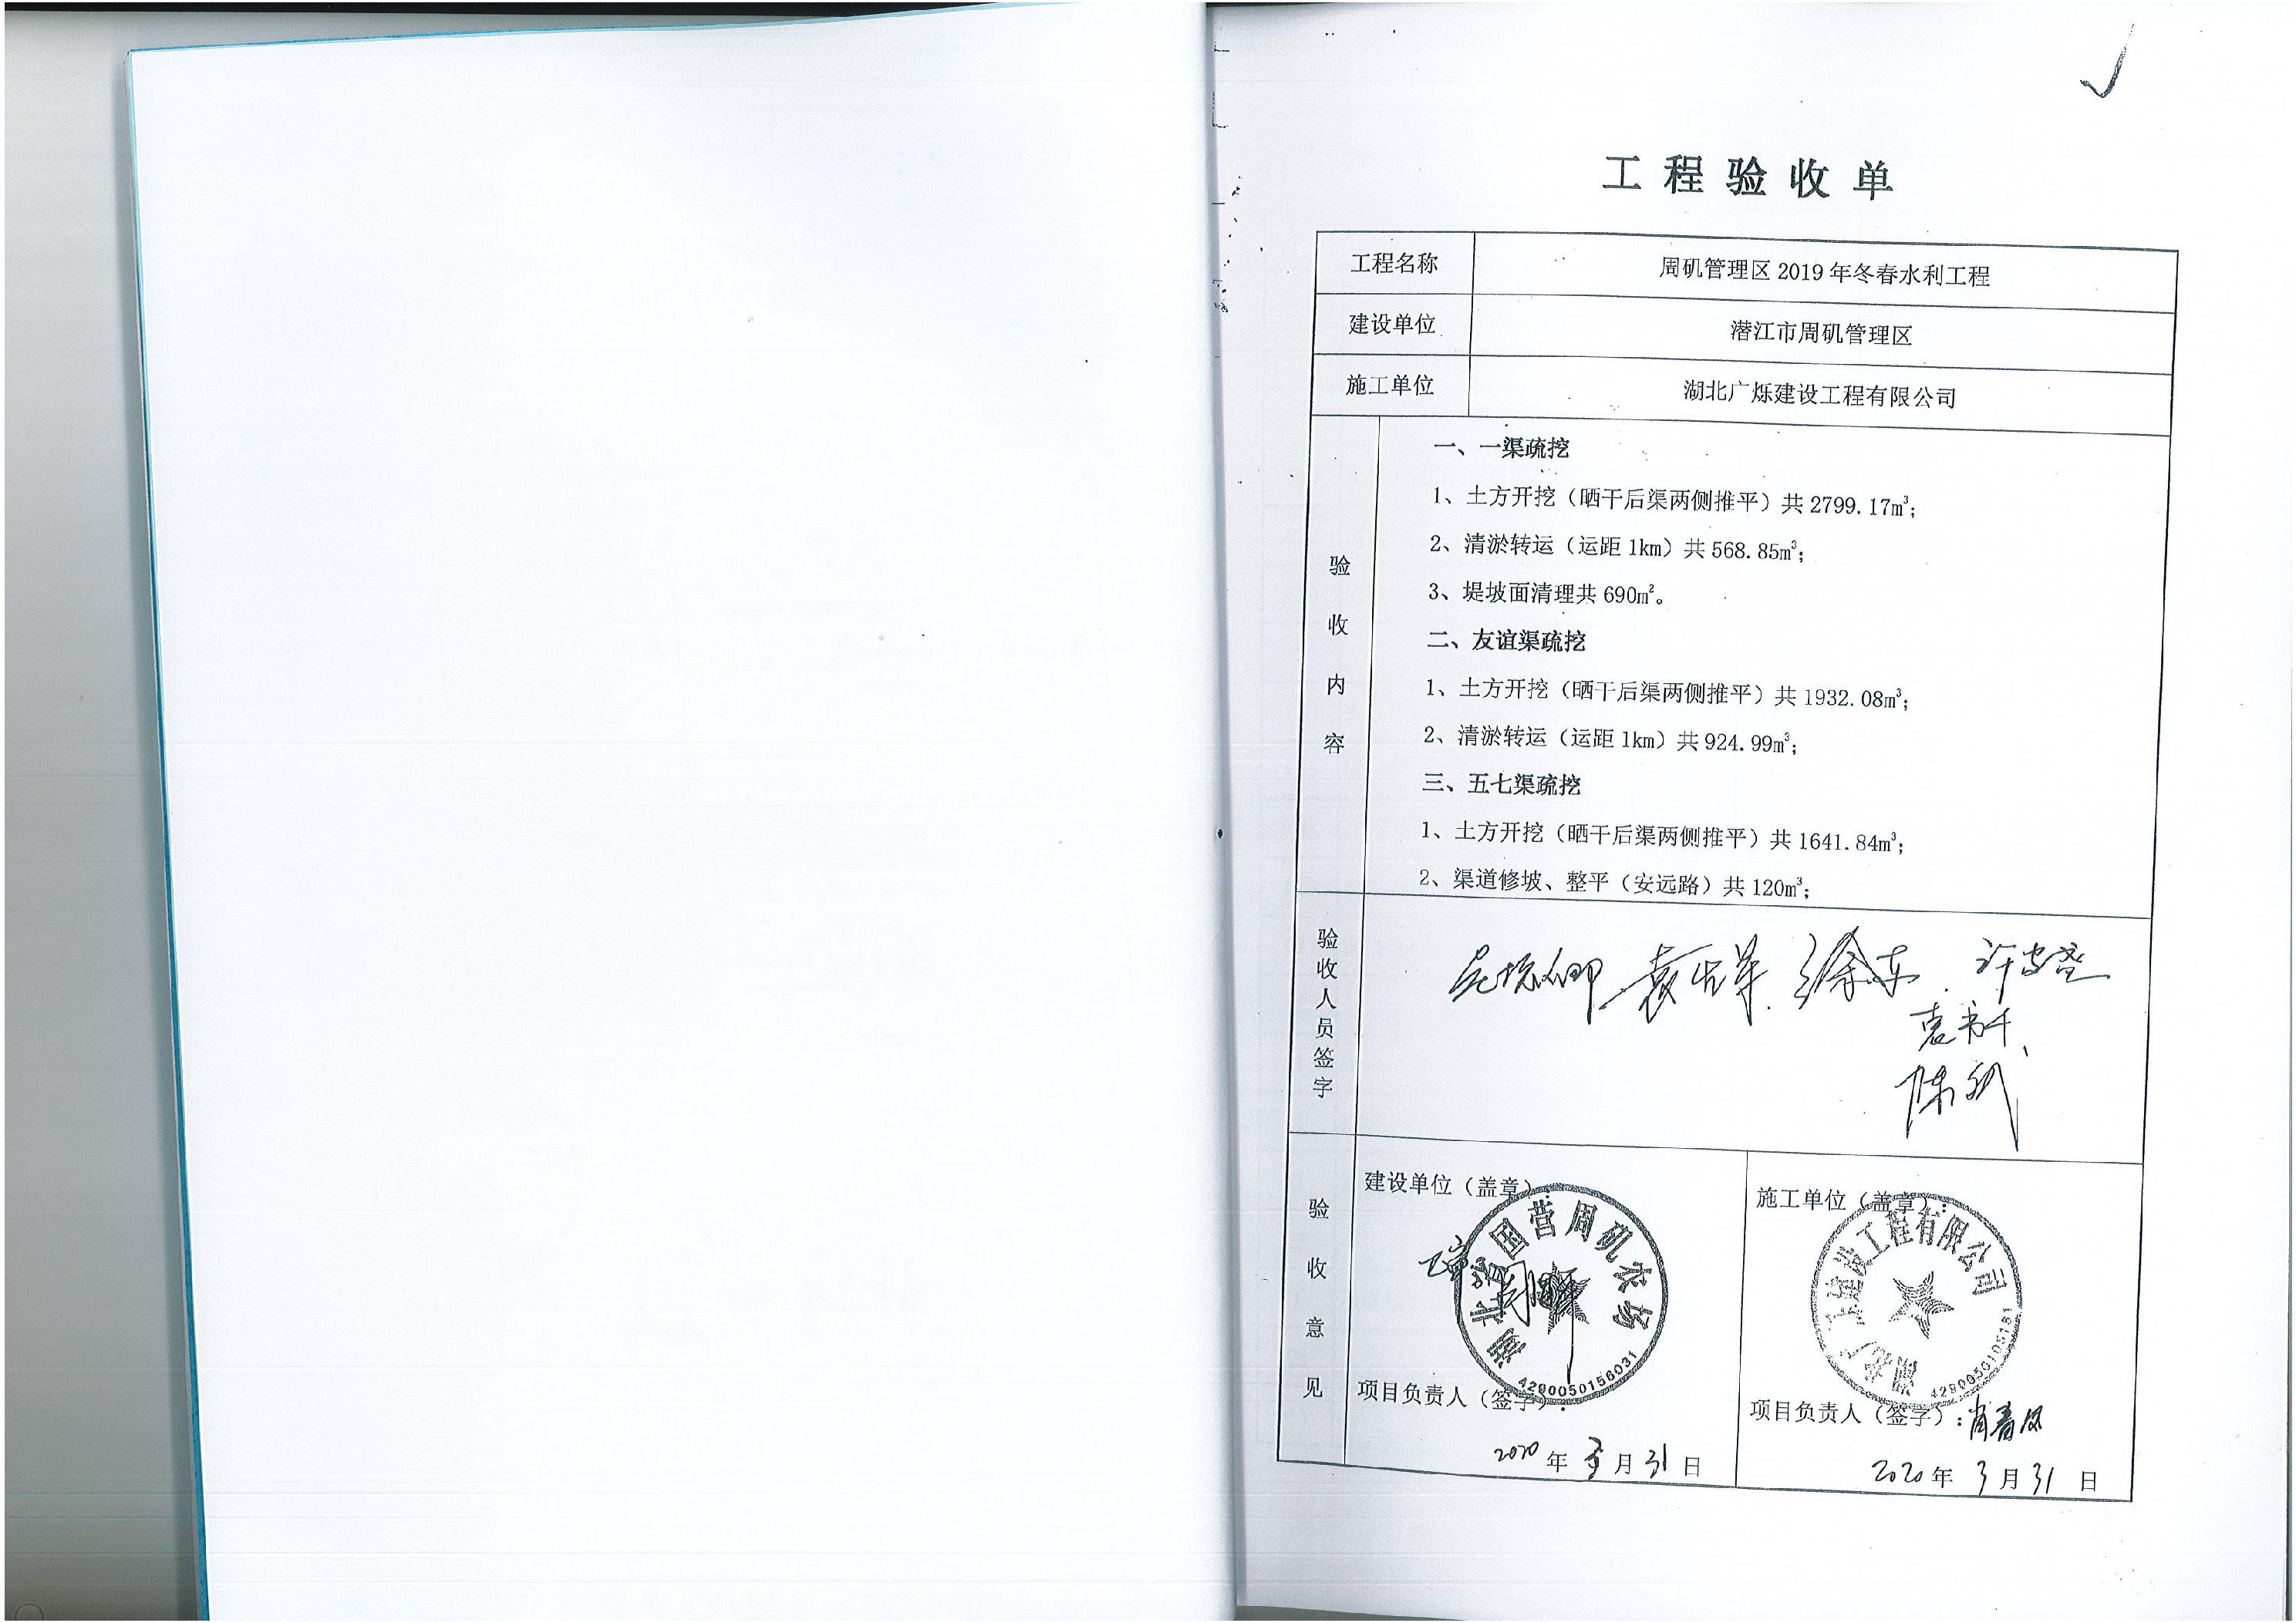 工程验收单
工程名称 周矶管理区2019年冬春水利工程
建设单位 潜江市周矶管理区
施工单位 湖北广烁建设工程有限公司
验收内容
一、一渠疏挖
1、土方开挖（晒干后渠两侧推平）共2799.17m³；
2、清淤转运（运距1km）共568.85m³；
3、堤坡面清理共690m²。
二、友谊渠疏挖
1、土方开挖（晒干后渠两侧推平）共1932.08m³；
2、清淤转运（运距1km）共924.99m³；
三、五七渠疏挖
1、土方开挖（晒干后渠两侧推平）共1641.84m³；
2、渠道修坡、整平（安远路）共120m³；
验收人员签字
徐东
陈
验收意见
建设单位（盖章）：
湖北省国营周矶农场
4290050156031
项目负责人（签字）：
2020年3月31日
施工单位（盖章）：
湖北广 建设工程有限公司
4290050105181
项目负责人（签字）：肖春
2020年3月31日